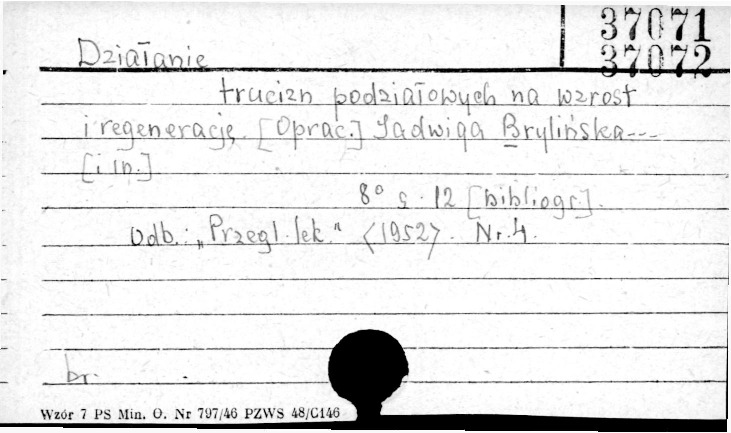 37071
37072
Działanie
trucizn podziałowych na wzrost
i regenerację. [Oprac.] Jadwiga Brylińska---
[i in.]
8° s. 12 [bibliogr.].
Odb.: „Przegl. lek." <1952>. Nr. 4.
br.
Wzór 7 PS Min. O. Nr 797/46 PZWS 48/C146